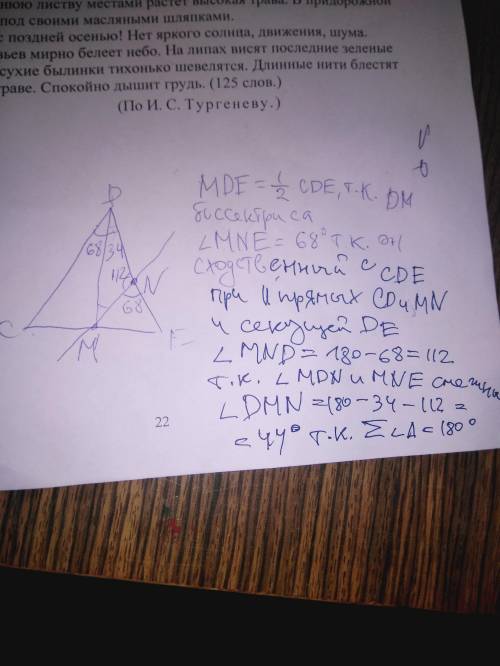 нюю листву местами растет высокая трава. В придорожной
под своими масляными шляпками.
с поздней осенью! Нет яркого солнца, движения, шума.
вьев мирно белеет небо. На липах висят последние зеленые
сухие былинки тихонько шевелятся. Длинные нити блестят
траве. Спокойно дышит грудь. (125 слов.)
(По И. С. Тургеневу.)
MDE = 1/2 CDE, т.к. DM
биссектриса
∠MNE = 68° т.к. он
сходственный с CDE
при || прямых CD и MN
и секущей DE
∠MND = 180-68=112
т.к. ∠MDN и MNE смежны
∠DMN = 180-34-112=
= 44° т.к. Σ∠Δ=180°
D
68 34
112
N
68
C
M
E
22